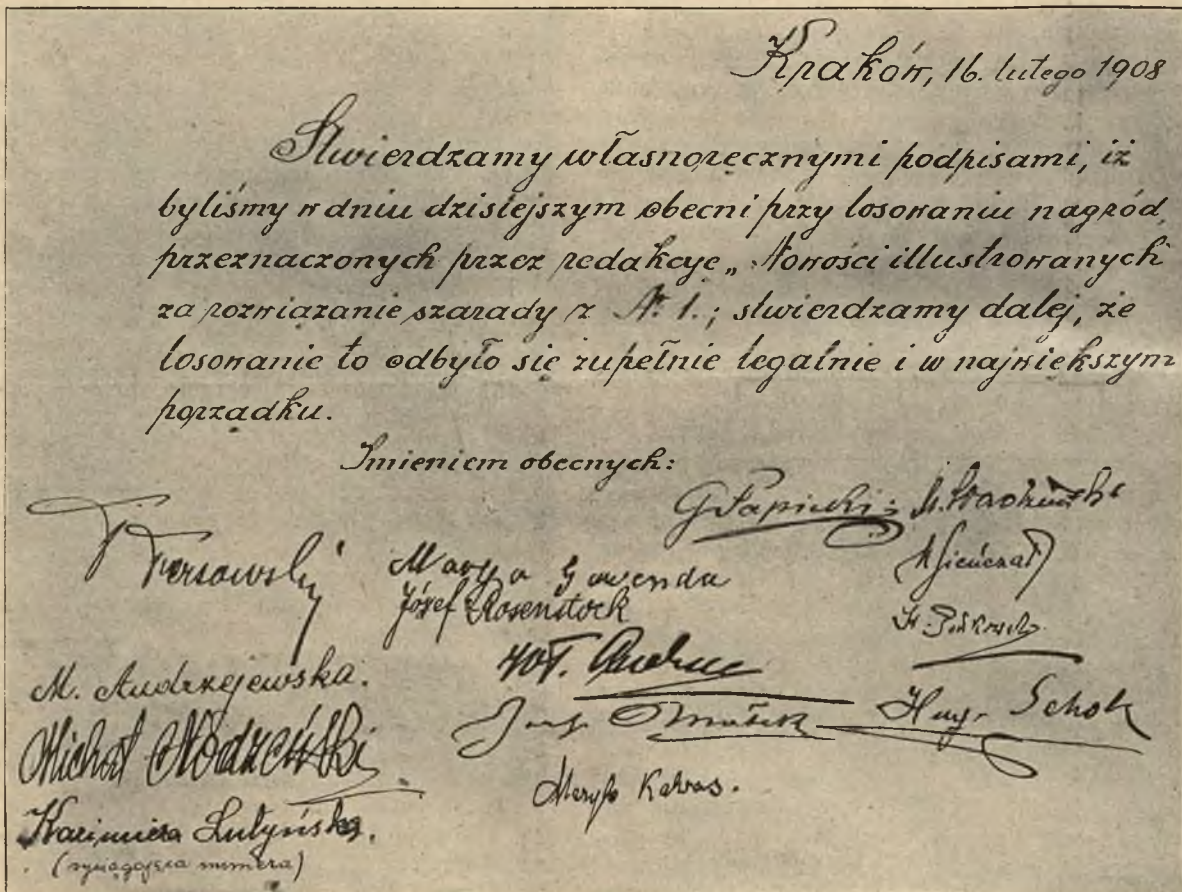 Kraków, 16. lutego 1908
Stwierdzamy własnoręcznymi podpisami, iż
byliśmy w dniu dzisiejszym obecni przy losowaniu nagród,
przeznaczonych przez redakcye „Nowości illustrowanych
za rozwiązanie szarady z Nr. 1.; stwierdzamy dalej, że
losowanie to odbyło się zupełnie legalnie i w największym
porządku.
Imieniem obecnych:
Marya Gawenda
Józef Rosenstock
M. Andrzejewska.
Hug. Schok
Michał
Marya Kawas.
Kazimiera Lutyńska.
(wyciągająca numera)